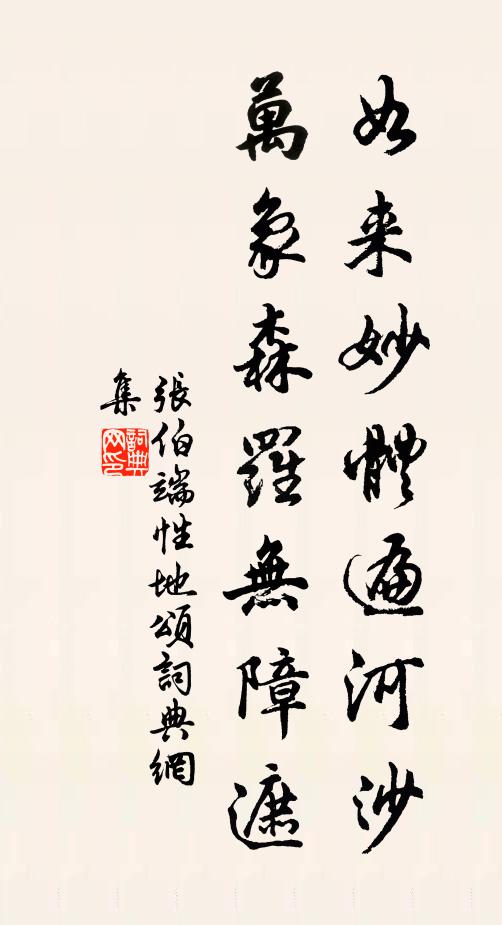 如来妙體遍河沙
萬象森羅無障遮
張伯端性地頌詞典網
集
詞典
网印